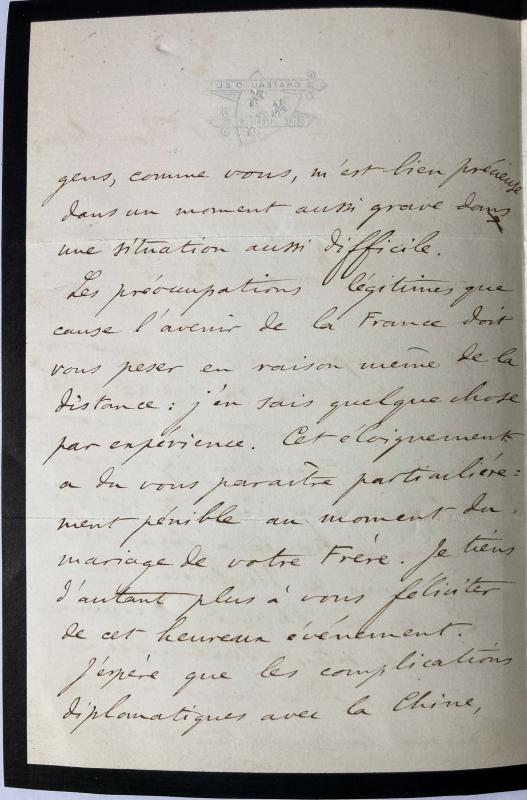 CHATEAU D'EU
SEINE INFÉRIEURE
gens, comme vous, m'est bien précieuse
dans un moment aussi grave dans
une situation aussi difficile.
Les préoccupations légitimes que
cause l'avenir de la France doit
vous peser en raison même de la
distance : j'en sais quelque chose
par expérience. Cet éloignement
a du vous paraître particulière=
ment pénible au moment du
mariage de votre Frère. Je tiens
d'autant plus à vous féliciter
de cet heureux événement.
J'espère que les complications
diplomatiques avec la Chine,